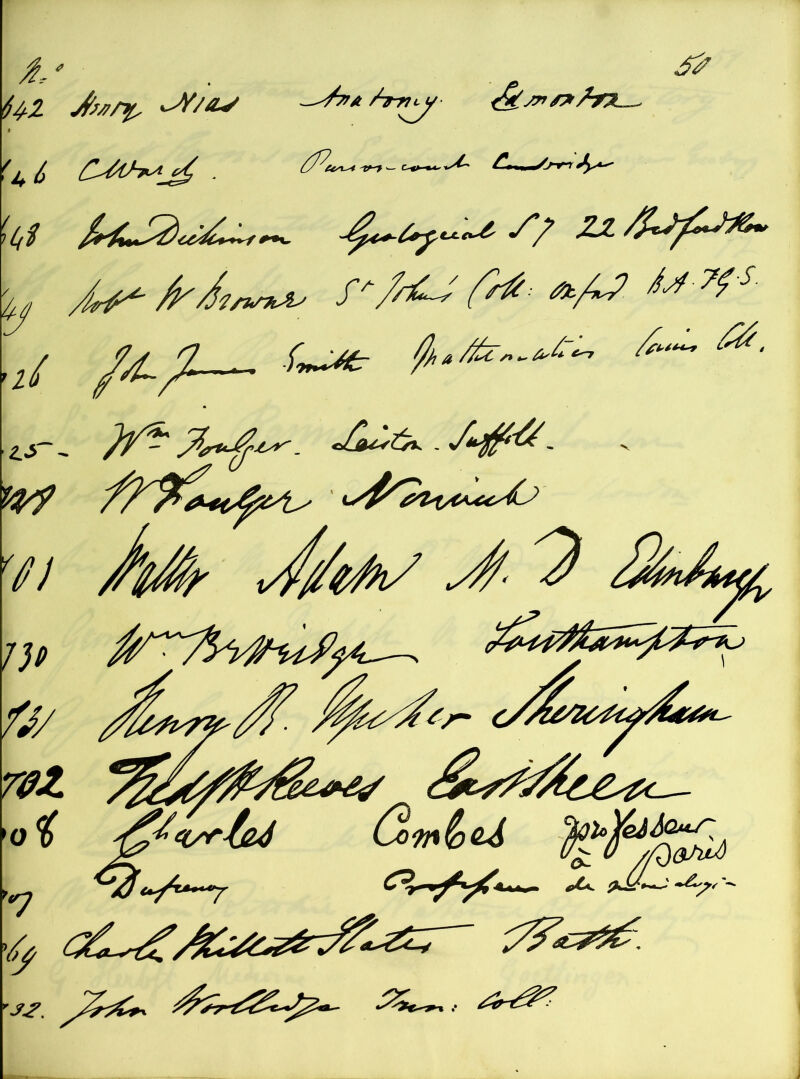 No. 50
642 Henry Nias Anatomy Edmonton
646 C Ward Cambridge
648 John Dickinson Geological S 7 22 Bedford Row
49 Robt W Browne St John's Coll: Oxford B.A. F.G.S.
726 John James Smith Mathematics Caius Coll.
25 - Wm Foulger. Leiston. Suffolk -
W Foulger Norwich
701 Walter Adam M. D Edinburgh
730 Wm Betteridge Southampton
731 Henry R. Upcher Sheringham
702 Fredk H Reeves East Sheen
708 Charles Combes professeur
à Paris
707 Dufrenoy Professeur de mineralogie
769 Charles Phillott Slater Bath.
732. John Woolledge Trin: Coll: